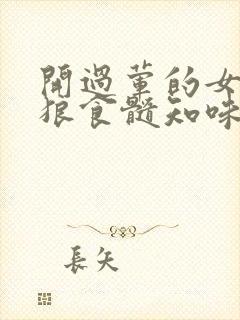 開過葷的女
狠食髓知味
長矢